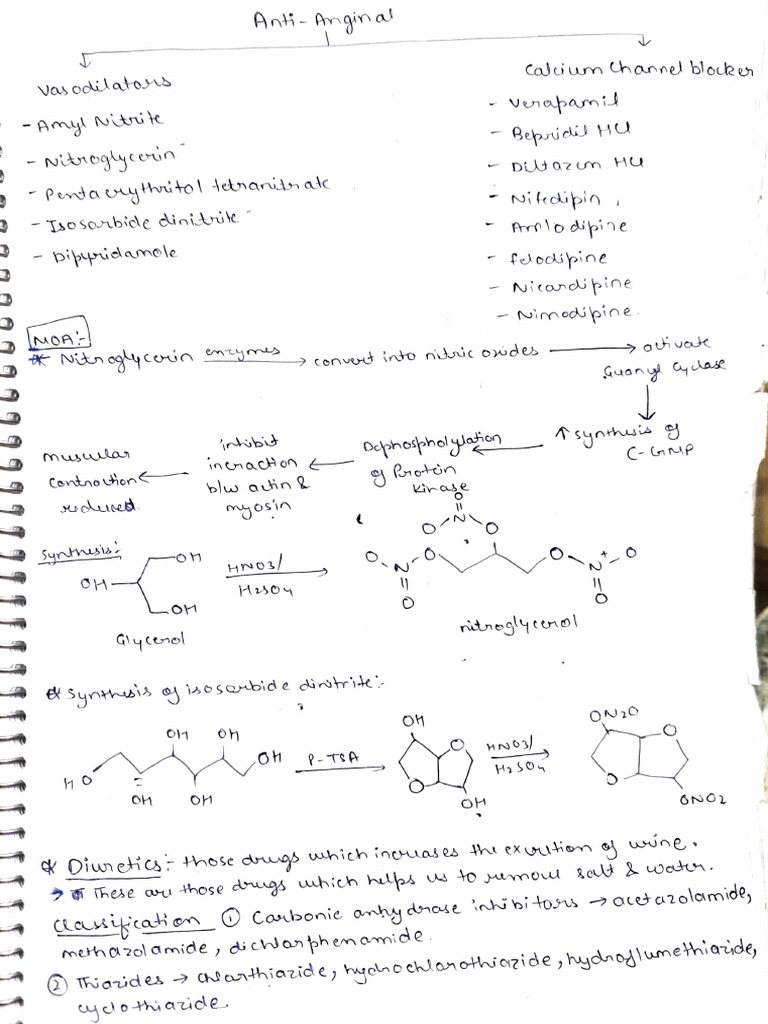 Anti-Anginal
Vasodilators
- Amyl Nitrite
- Nitroglycerin
- Pentaerythritol tetranitrate
- Isosorbide dinitrite
- Dipyridamole
Calcium Channel blocker
- Verapamil
- Bepridil HCl
- Diltazem HCl
- Nifedipin
- Amlodipine
- felodipine
- Nicardipine
- Nimodipine.
MOA:-
* Nitroglycerin enzymes → convert into nitric oxides → activate
Guanyl Cyclase
↑ synthesis of
C-GMP
Dephospholylation
of Protein
Kinase
inhibit
incraction
b/w actin &
myosin
muscular
controction
reduced.
Synthesis:-
OH
OH
OH
Glycerol
HNO3/
H2SO4
O
N
O O
O N O
O
O N+ O
O
nitroglycerol
* Synthesis of isosorbide dinitrite:-
HO OH OH OH
OH OH
P-TSA
OH
O
O
OH
HNO3/
H2SO4
ON2O
O
O
ONO2
* Diuretics:- those drugs which increases the excrition of urine.
→ These are those drugs which helps us to remove salt & water.
Classification ① Carbonic anhydrase inhibitors → acetazolamide,
methazolamide, dichlarphenamide.
② Thiazides → chlarthiazide, hydrochlorothiazide, hydroflumethiazide,
cyclothiazide.